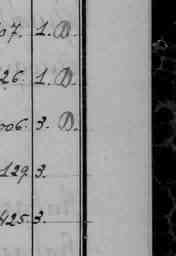 07. 1. D.
26. 1. D.
006. 3. D.
129. 3.
425. 3.